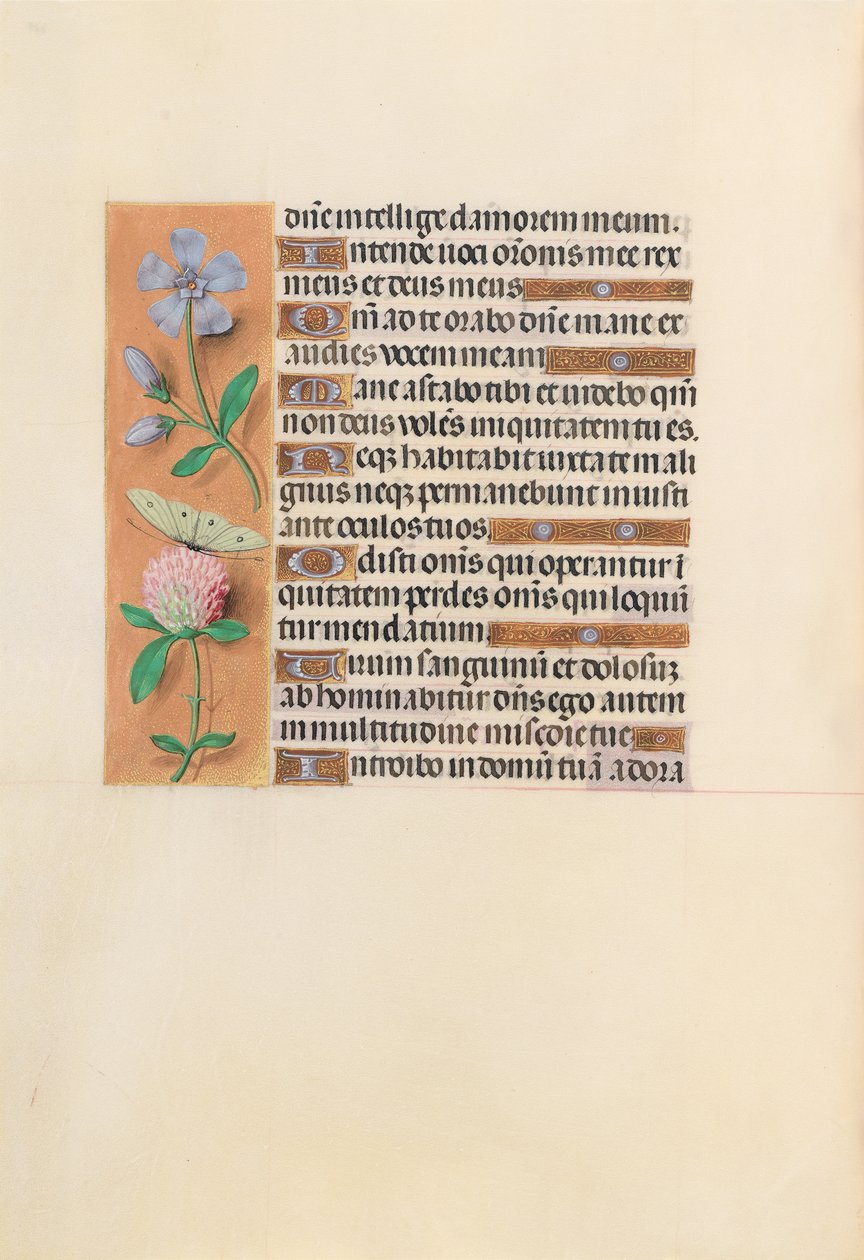 dn̄e intellige clamorem meum.
Intende uoci or̄onis mee rex
meus et deus meus
Qm̄ ad te orabo dn̄e mane ex
audies vocem meam
Mane astabo tibi et uidebo qm̄
non deus volēs iniquitatem tu es.
Neqꝫ habitabit iuxta te mali
gnus neqꝫ permanebunt iniusti
ante oculos tuos.
Odisti om̄s qui operantur ī
quitatem perdes om̄s qui loquū
tur mendatium.
Uirum sanguinū et dolosuꝫ
abhominabitur dn̄s ego autem
in multitudine miscd̄ie tue
Introibo in domū tuā adora